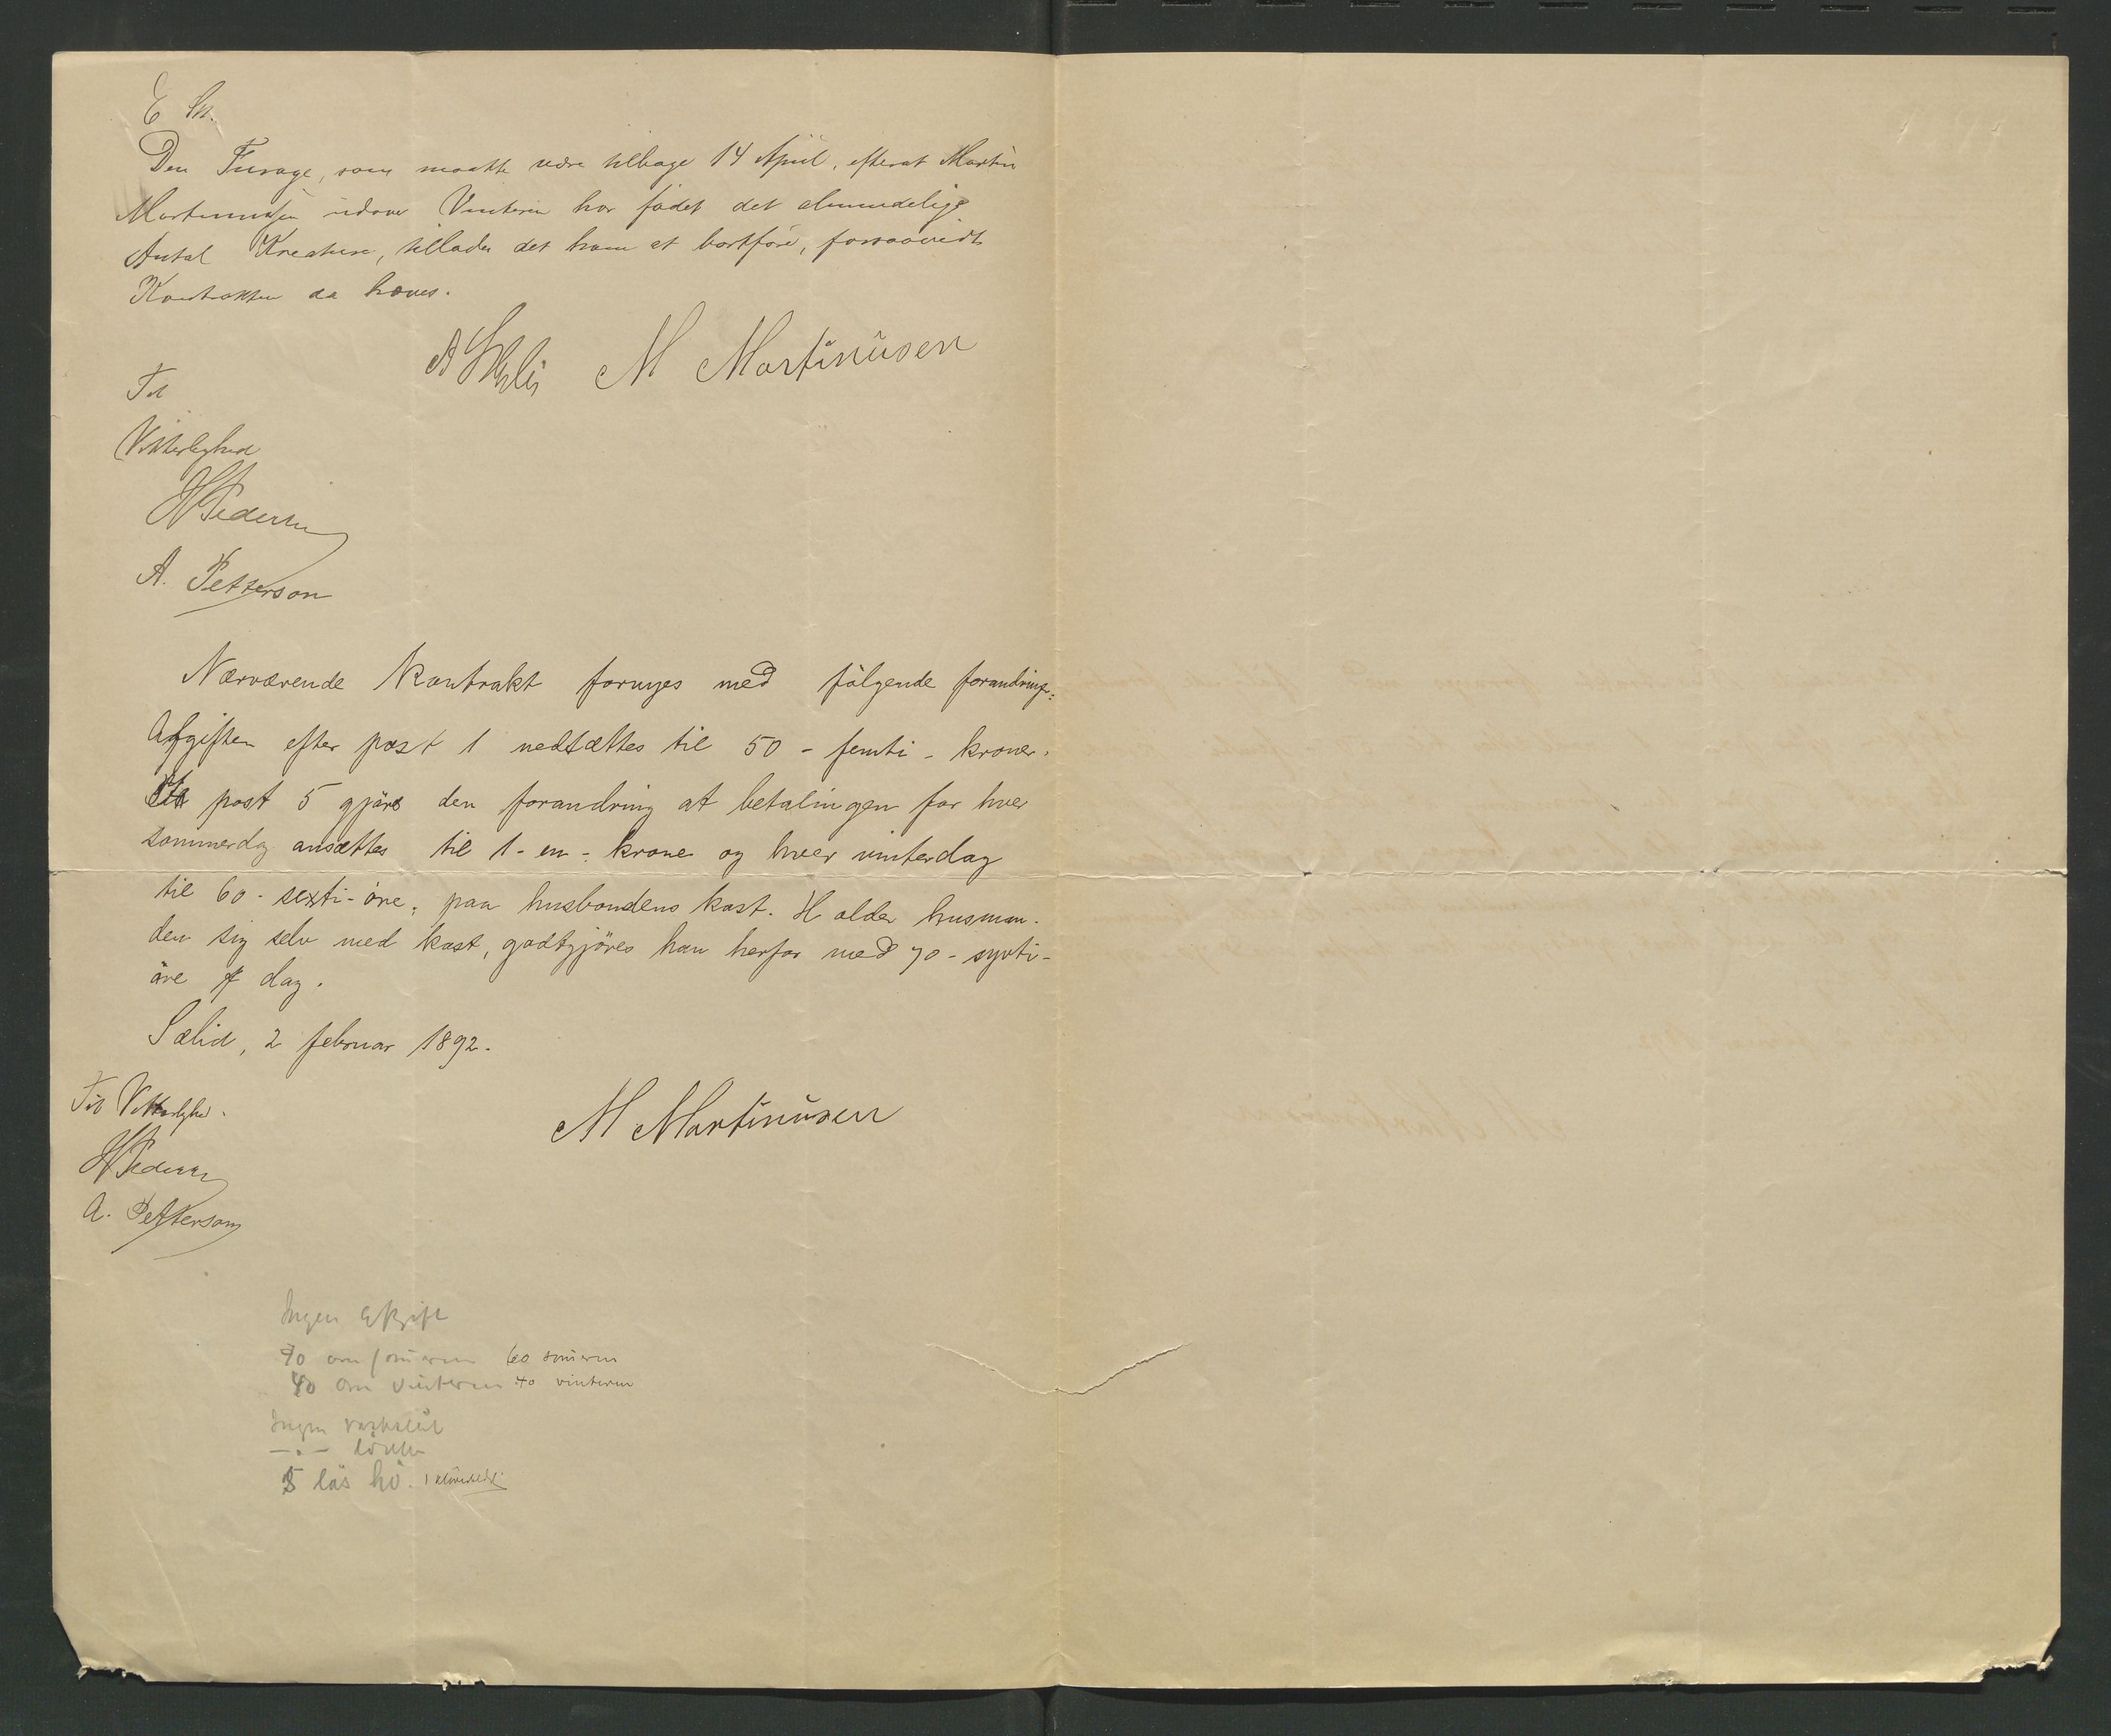 E Sk.
Den Furage, som maatte være tilbage 14 April, efterat Martin
Martinusen udover Vinteren har födet det almindelige
Antal Kreature, tillades det ham at bortföre, forsaavidt
Kontrakten da hæves.
M Martinusen
Til
Vitterlighed
H Pedersen
A. Petterson
Nærværende kontrakt fornyes med fölgende forandring:
Afgiften efter post 1 nedsættes til 50 - femti - kroner.
post 5 gjöres den forandring at betalingen for hver
sommerdag ansættes til 1 - en - krone og hver vinterdag
til 60 - sexti - öre, paa husbondens kost. Holder husman-
den sig selv med kost, godtgjöres han herfor med 70 - sytti -
öre pr dag.
Sælid, 2 februar 1892.
Til Vitterlighed.
M Martinusen
H Pedersen
A. Petterson
Ingen afgift
70 om sommeren 60 someren
40 om vinteren 40 vinteren
Ingen
5 läs hö. 1